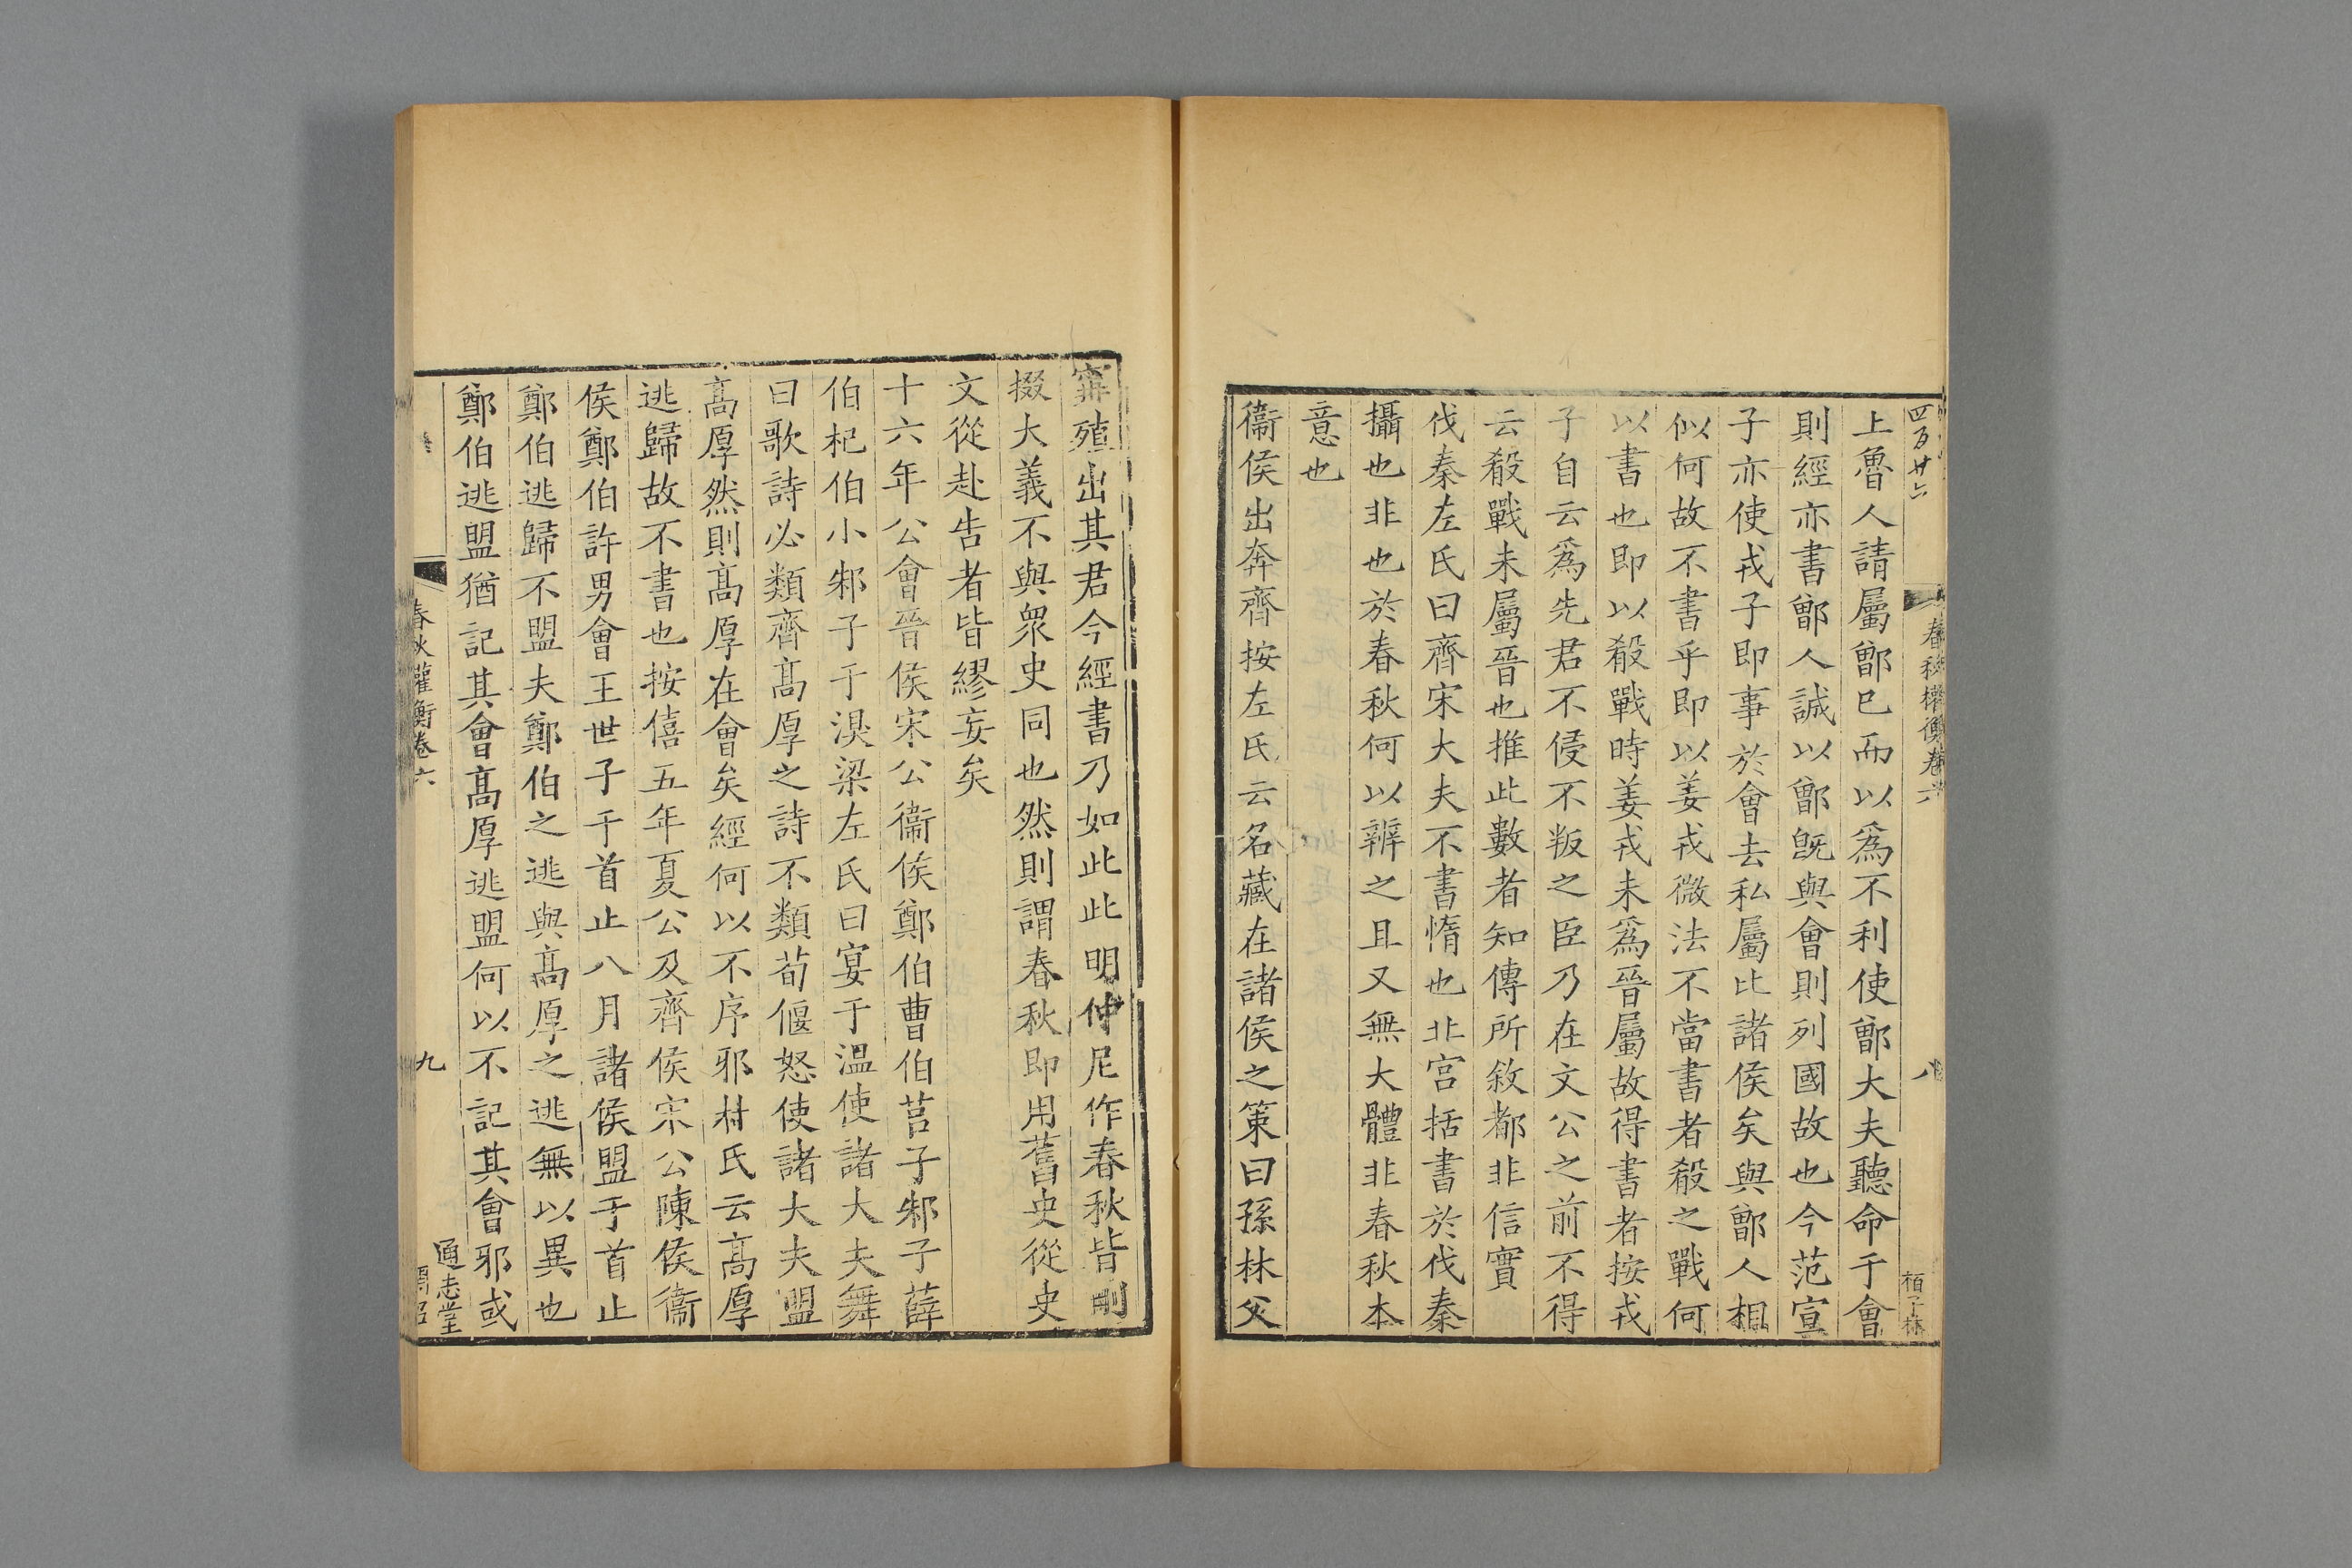 四百廿六
春秋權衡卷六
八
上魯人請屬鄫已而以爲不利使鄫大夫聽命于會
則經亦書鄫人誠以鄫旣與會則列國故也今范宣
子亦使戎子即事於會去私屬比諸侯矣與鄫人相
似何故不書乎即以姜戎微法不當書者殽之戰何
以書也即以殽戰時姜戎未爲晉屬故得書者按戎
子自云爲先君不侵不叛之臣乃在文公之前不得
云殽戰未屬晉也推此數者知傳所敘都非信實
伐秦左氏曰齊宋大夫不書惰也北宫括書於伐秦
攝也非也於春秋何以辨之且又無大體非春秋本
意也
衞侯出奔齊按左氏云名藏在諸侯之策曰孫林父
甯殖出其君今經書乃如此此明仲尼作春秋皆刪
掇大義不與衆史同也然則謂春秋即用舊史從史
文從赴告者皆繆妄矣
十六年公會晉侯宋公衞侯鄭伯曹伯莒子邾子薛
伯杞伯小邾子于湨梁左氏曰宴于溫使諸大夫舞
曰歌詩必類齊髙厚之詩不類荀偃怒使諸大夫盟
髙厚然則髙厚在會矣經何以不序邪杜氏云髙厚
逃歸故不書也按僖五年夏公及齊侯宋公陳侯衞
侯鄭伯許男會王世子于首止八月諸侯盟于首止
鄭伯逃歸不盟夫鄭伯之逃與髙厚之逃無以異也
鄭伯逃盟猶記其會髙厚逃盟何以不記其會邪或
春秋權衡卷六
九
通志堂